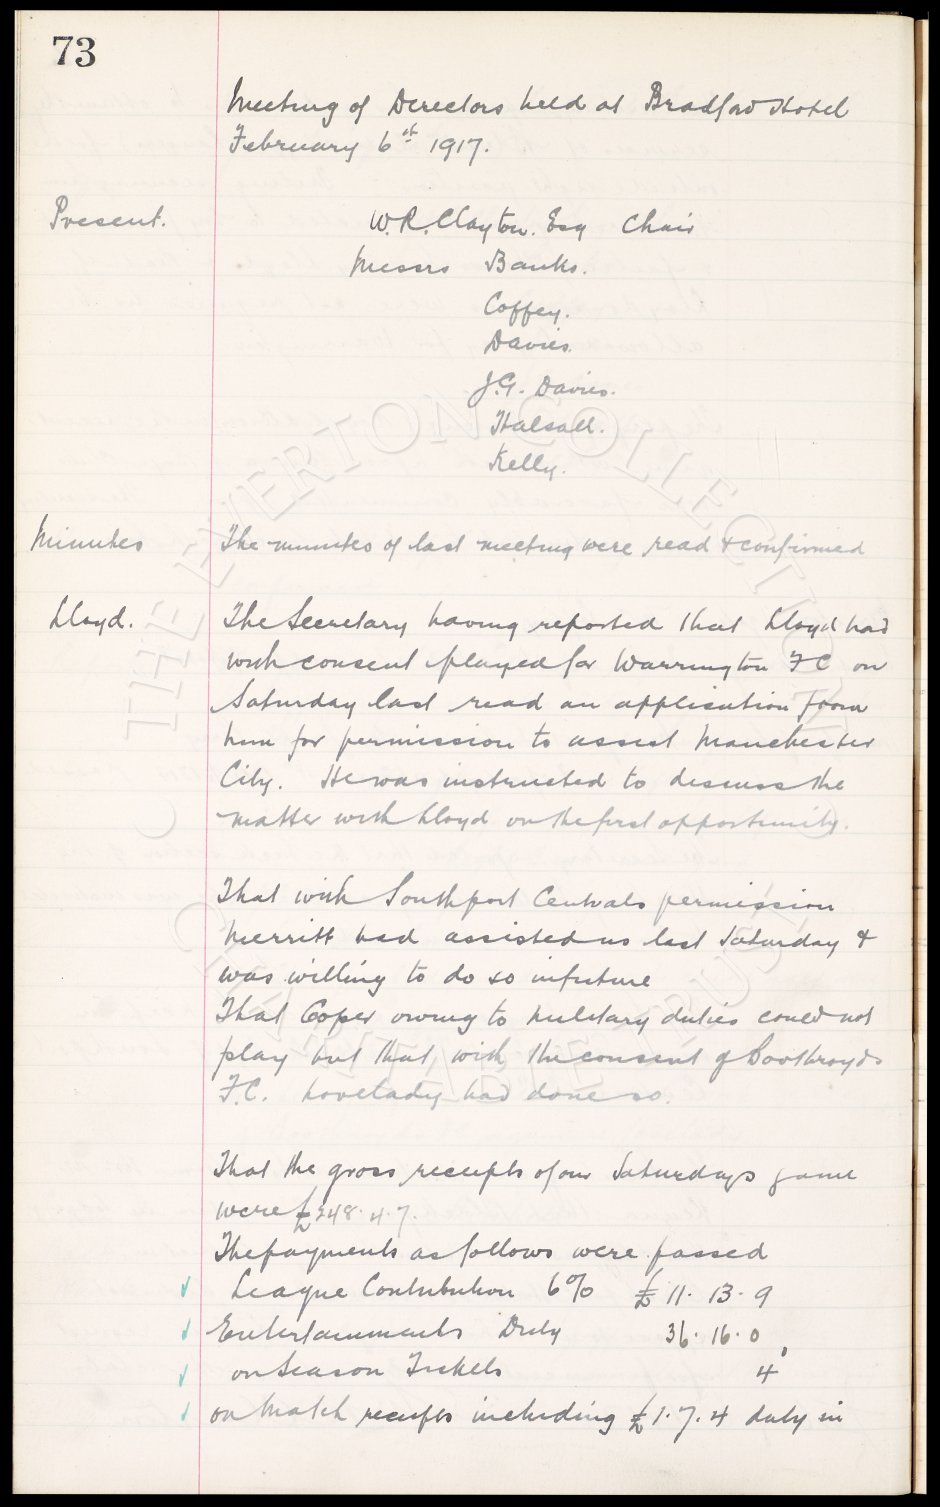 73
Meeting of Directors held at Bradford Hotel
February 6th 1917.
Present. W.R. Clayton. Esq Chair
Messrs Banks.
Coffey.
Davies.
J.G. Davies.
Halsall.
Kelly.
Minutes The minutes of last meeting were read & confirmed
Lloyd. The Secretary having reported that Lloyd had
with consent played for Warrington F C on
Saturday last read an application from
him for permission to assist Manchester
City. He was instructed to discuss the
matter with Lloyd on the first opportunity.
That with Southport Centrals permission
Merritt had assisted us last Saturday &
was willing to do so in future
That Cooper owing to military duties could not
play but that, with the consent of Boothroyds
F.C. Lovelady had done so.
That the gross receipts of our Saturdays game
were £248.4.7.
The payments as follows were passed
League Contribution 6% £11.13.9
Entertainments Duty 36.16.0
on Season Tickets 4
on Match receipts including £1.7.4 duty in
THE EVERTON COLLECTION
CHARITABLE TRUST